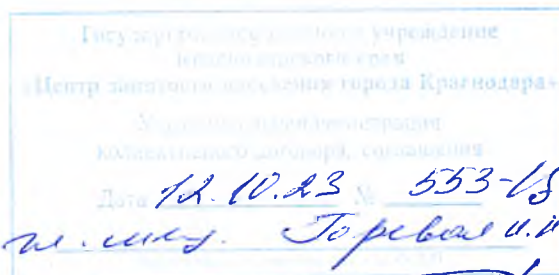 Государственное казенное учреждение
Краснодарского края
«Центр занятости населения города Краснодара»
Уведомительная регистрация
коллективного договора, соглашения
Дата 12.10.23 № 553-
гл. инсп.